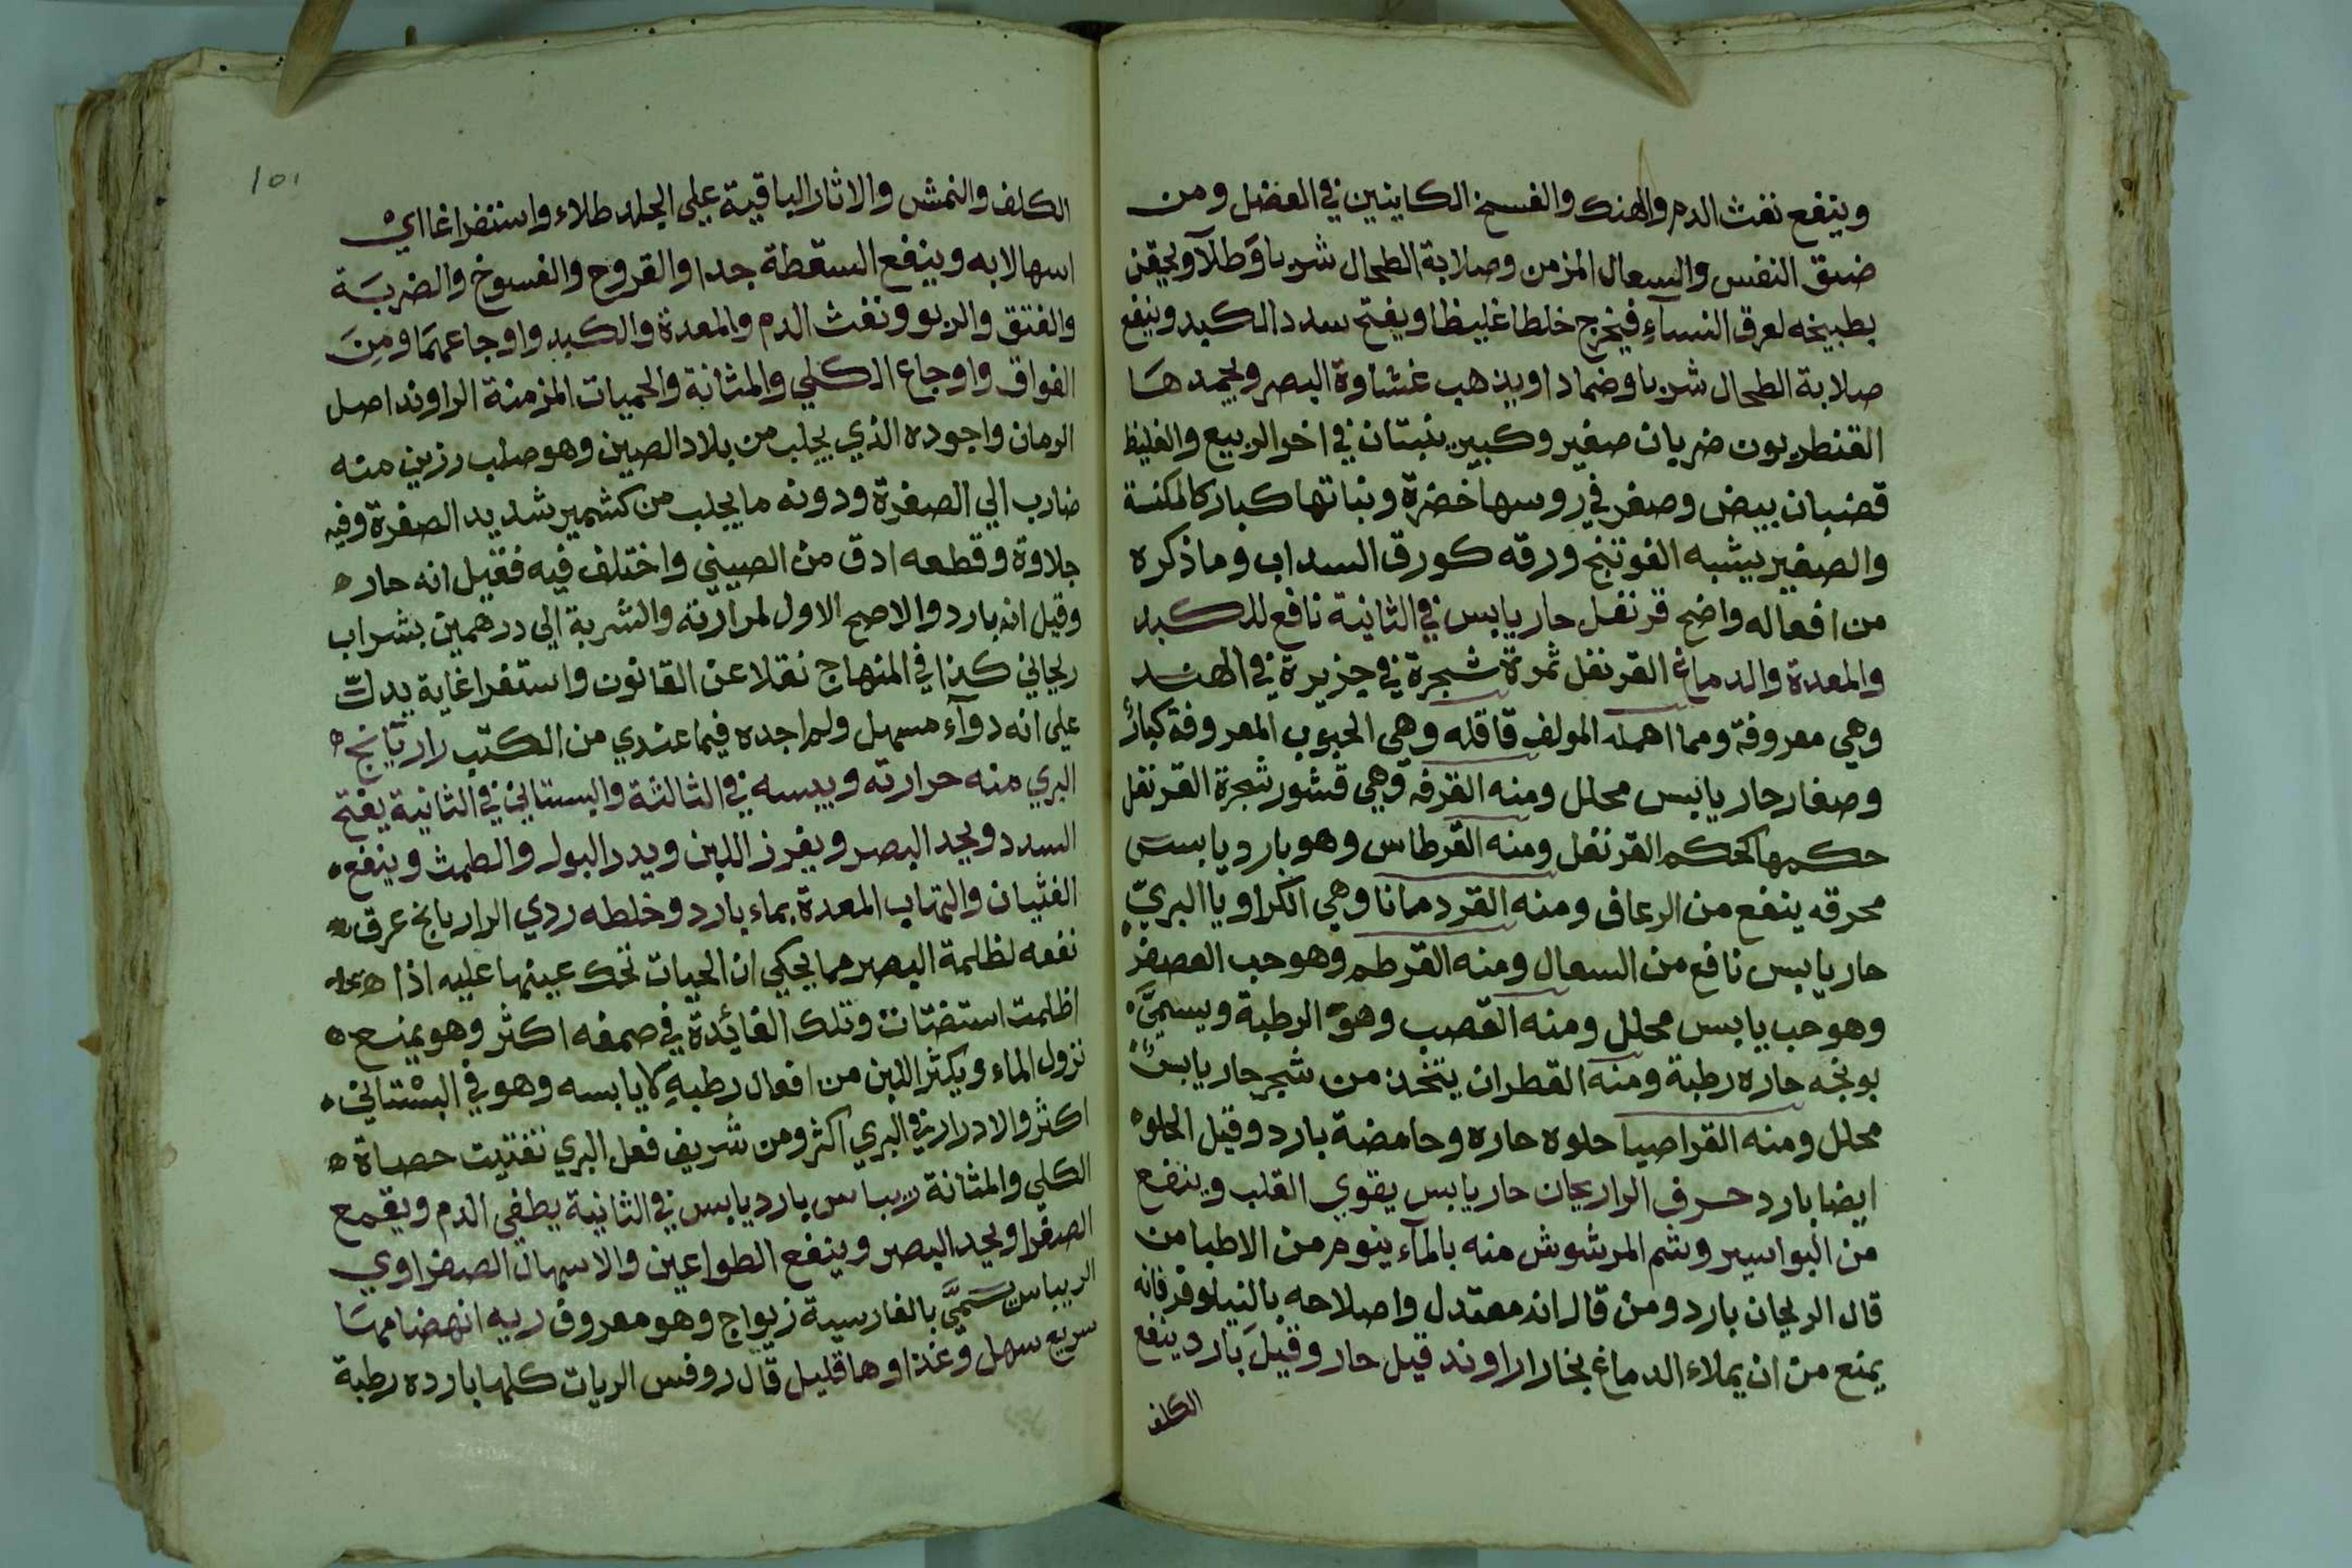 وينفع نفث الدم والهتك والفسخ الكاينين في العضل ومن
ضيق النفس والسعال المزمن وصلابة الطحال شربا وطلآ ويحقن
بطبيخه لعرق النسآء فيخرج خلطا غليظا ويفتح سدد الكبد وينفع
صلابة الطحال شربا وضمادا ويذهب غشاوة البصر ويحمدها
القنطريون ضربان صغير وكبير ينبتان في اخر الربيع والغليظ
قضبان بيض وصفر في روسها خضرة ونباتها كبار كالمكنسة
والصغير يشبه الفوتنج ورقه كورق السداب وما ذكره
من افعاله واضح قرنفل حار يابس في الثانية نافع للكبد
والمعدة والدماغ القرنفل ثمرة شجرة في جزيرة في الهند
وهي معروفة ومما اهمله المولف قاقله وهي الحبوب المعروفة كبار
وصغار حار يابس محلل ومنه القرفه وهي قشور شجرة القرنفل
حكمها كحكم القرنفل ومنه القرطاس وهو بارد يابس
محرقه ينفع من الرعاف ومنه القردمانا وهي الكراويا البري
حار يابس نافع من السعال ومنه القرطم وهو حب العصفر
وهو حب يابس محلل ومنه القصب وهو الرطبة ويسمي
بونجه حاره رطبة ومنه القطران يتخذ من شجر حار يابس
محلل ومنه القراصيا حلوه حاره وحامضة بارد وقيل الحلوه
ايضا بارد حرف الرا ريحان حار يابس يقوي القلب وينفع
من البواسير وشم المرشوش منه بالمآء ينوم من الاطبا من
قال الريحان بارد ومن قال انه معتدل واصلاحه بالنيلوفر فانه
يمنع من ان يملاء الدماغ بخارا راوند قيل حار وقيل بارد ينفع
الكلف
١٥١
الكلف والنمش والاثار الباقية علي الجلد طلاء واستفراغا اي
اسهالا به وينفع السقطة جدا والقروح والفسوخ والضربة
والفتق والربو ونفث الدم والمعدة والكبد واوجاعهما ومن
الفواق واوجاع الكلي والمثانة والحميات المزمنة الراوند اصل
الرمان واجوده الذي يجلب من بلاد الصين وهو صلب رزين منه
ضارب الي الصفرة ودونه ما يجلب من كشمير شديد الصفرة وفيه
جلاوة وقطعه ادق من الصيني واختلف فيه فقيل انه حار
وقيل انه بارد والاصح الاول لمرارته والشربة الي درهمين بشراب
ريحاني كذا في المنهاج نقلا عن القانون واستفراغا به يدل
علي انه دوآء مسهل ولم اجده فيما عندي من الكتب رازيانج
البري منه حرارته ويبسه في الثالثة والبستاني في الثانية يفتح
السدد ويحد البصر ويغزز اللبن ويدر البول والطمث وينفع
الغثيان والتهاب المعدة بماء بارد وخلطه ردي الرازيانج عرق
نفعه لظلمة البصر مما يحكي ان الحيات تحك عينها عليه اذا
اظلمت استضتات وتلك الفائدة في صمغه اكثر وهو يمنع
نزول الماء ويكثر اللبن من افعال رطبه كا يابسه وهو في البستاني
اكثر والادرار في البري اكثر ومن شريف فعل البري تفتيت حصاة
الكلي والمثانة ريباس بارد يابس في الثانية يطفي الدم ويقمع
الصفرا ويحد البصر وينفع الطواعين والاسهال الصفراوي
الريباس يسمي بالفارسية زيواج وهو معروف ريه انهضامها
سريع سهل وغذاوها قليل قال روفس الريات كلها بارده رطبة